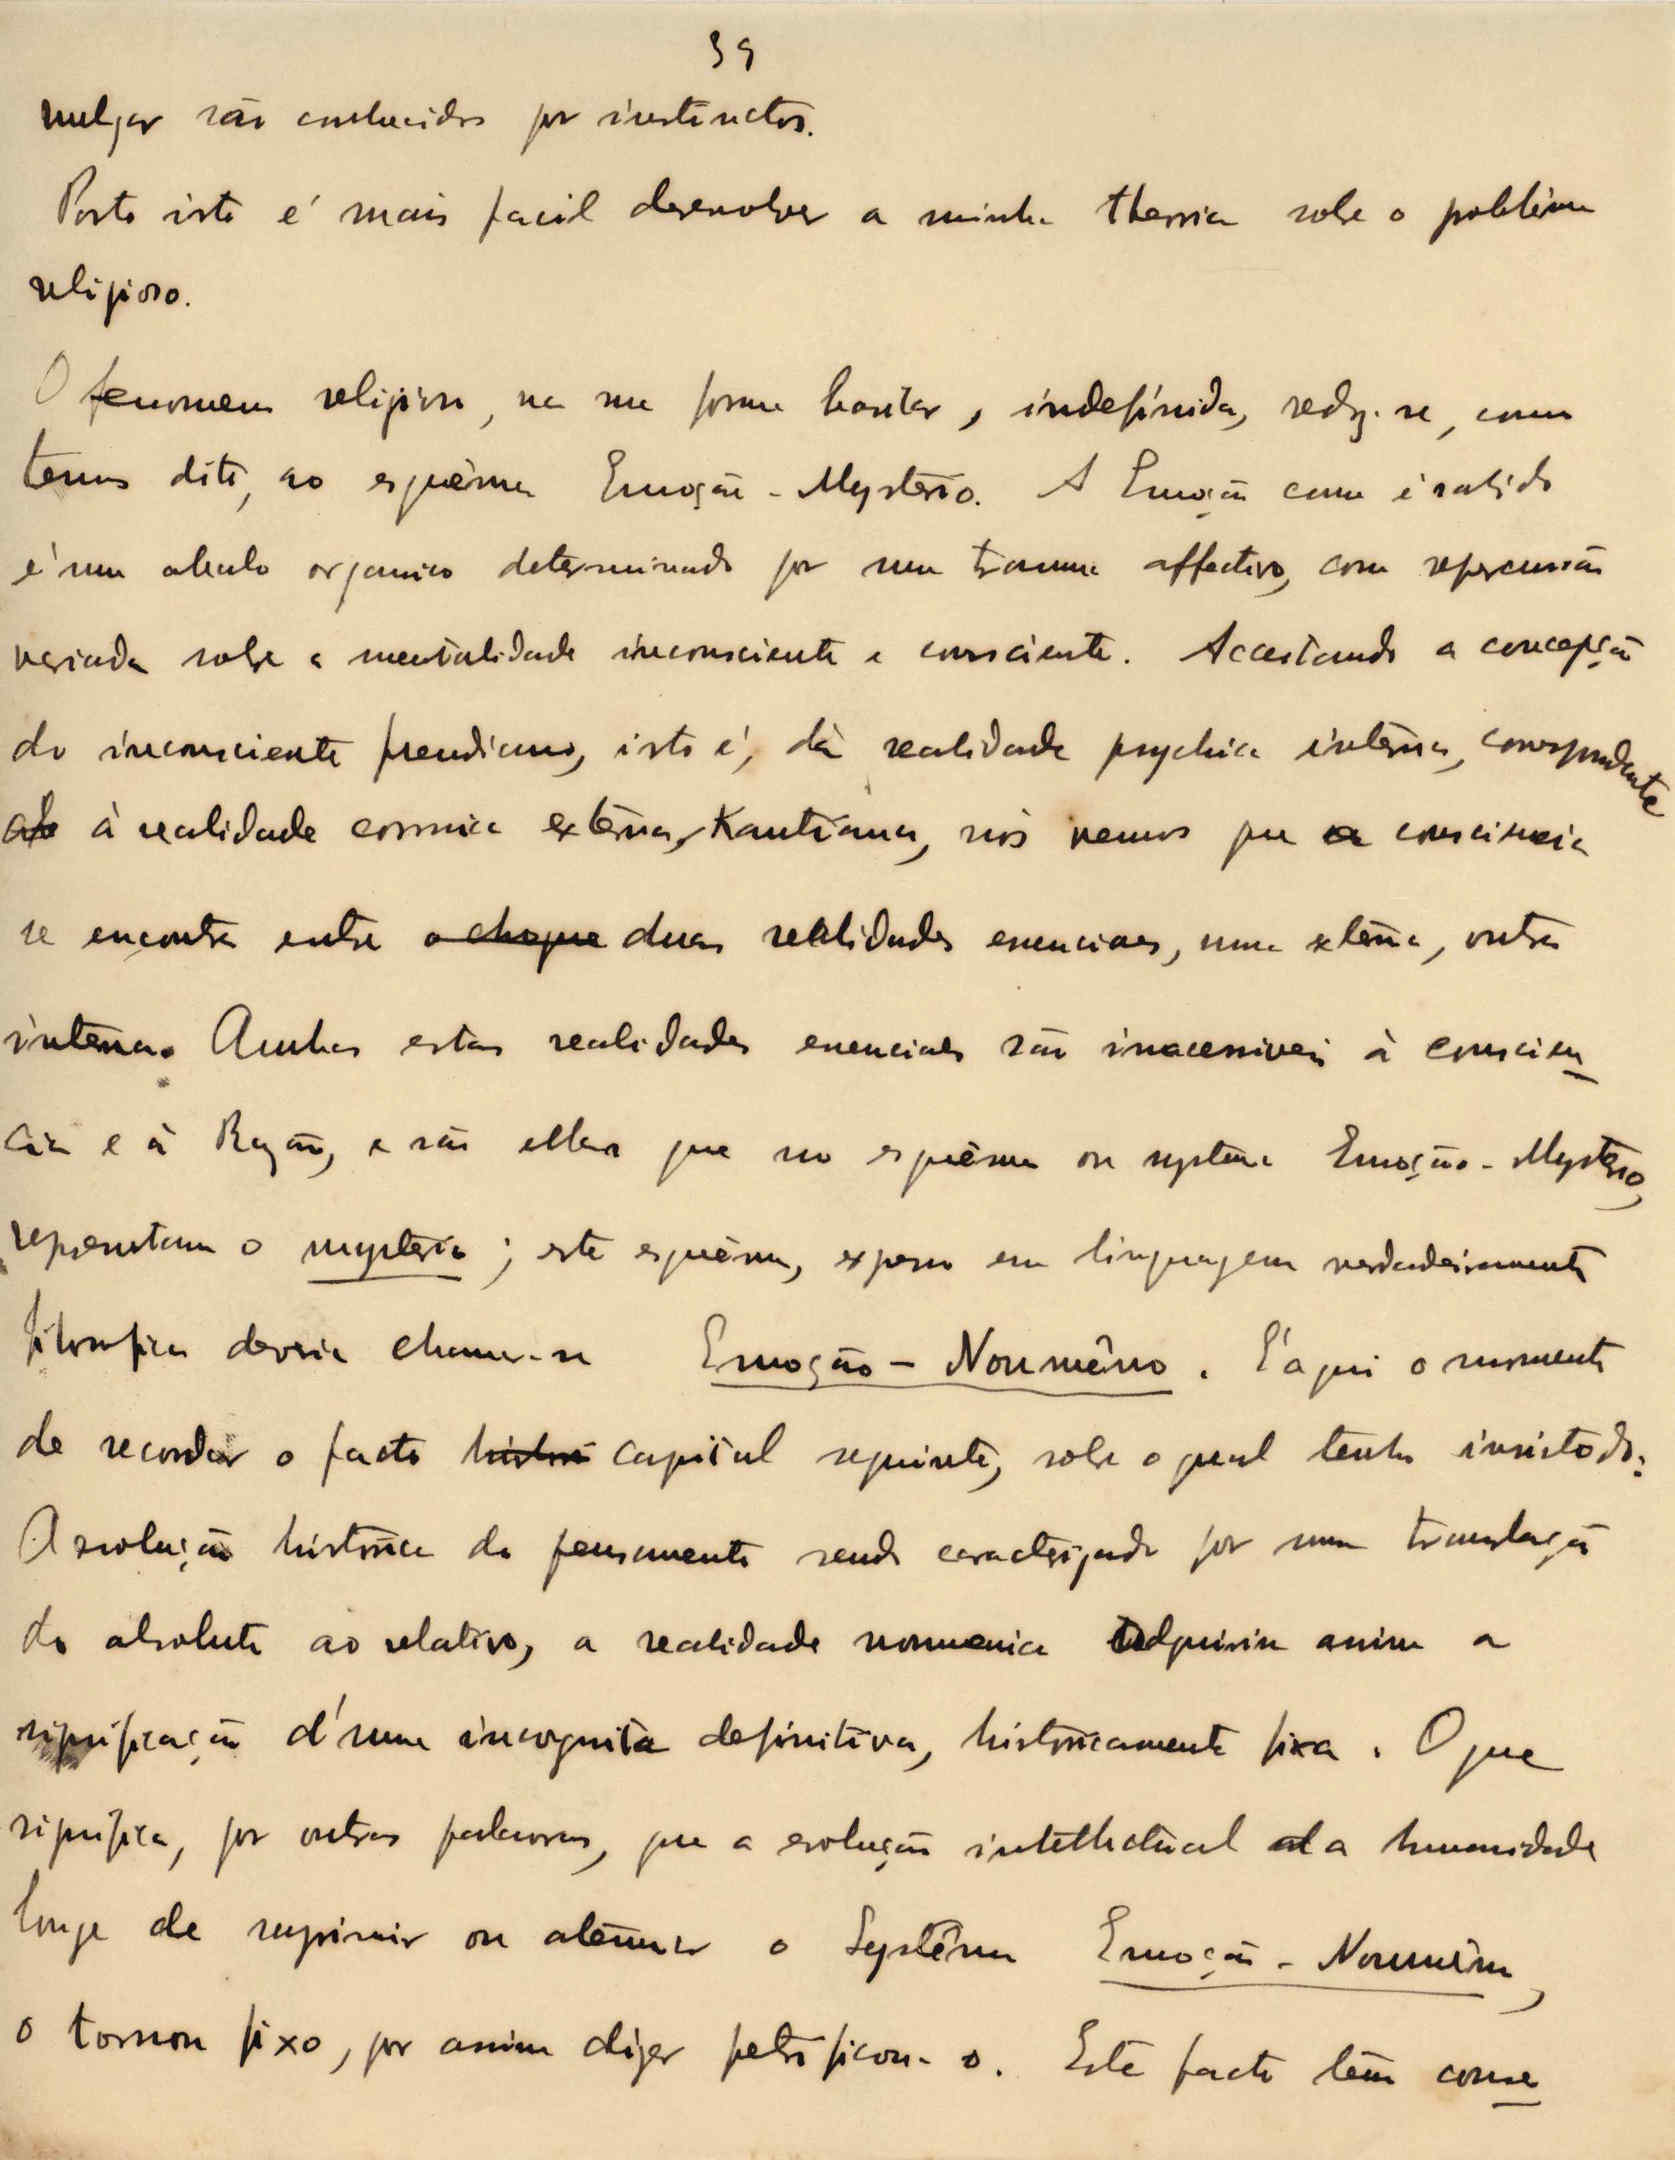 39
vulgar são conhecidos por instinctos.
Posto isto é mais facil desenvolver a minha theoria sobre o problêma
religioso.
O fenomeno religioso, na sua forma bastar, indefinida, reduz-se, como
temos dito, ao esquêma Emoção - Mysterio. A Emoção como é sabido
é um abalo organico determinado por um trauma affectivo, com repercussão
variada sobre a mentalidade inconsciente e consciente. Acceitando a concepção
do inconsciente freudiano, isto é, da realidade psychica interna, correspondente
à realidade cosmica externa, Kantiana, nós vemos que a consciencia
se encontra entre o choque duas realidades essenciaes, uma externa, outra
interna. Ambas estas realidades essenciaes são inacessiveis à conscien
cia e à Razão, e são ellas que no esquêma ou systema Emoção - Mysterio,
representam o mysterio; este esquêma, exposto em linguagem verdadeiramente
filosofica deveria chamar-se Emoção - Noumêno. É aqui o momento
de recordar o facto capital seguinte, sobre o qual tenho insistido:
A evolução histórica do pensamento sendo caracterizada por uma translação
do absoluto ao relativo, a realidade noumenica adquiriu assim a
significação d'uma incognita definitiva, historicamente fixa. O que
significa, por outras palavras, que a evolução intellectual da humanidade
longe de suprimir ou atenuar o Systêma Emoção - Noumêno,
o tornou fixo, por assim dizer petrificou-o. Este facto têm conse